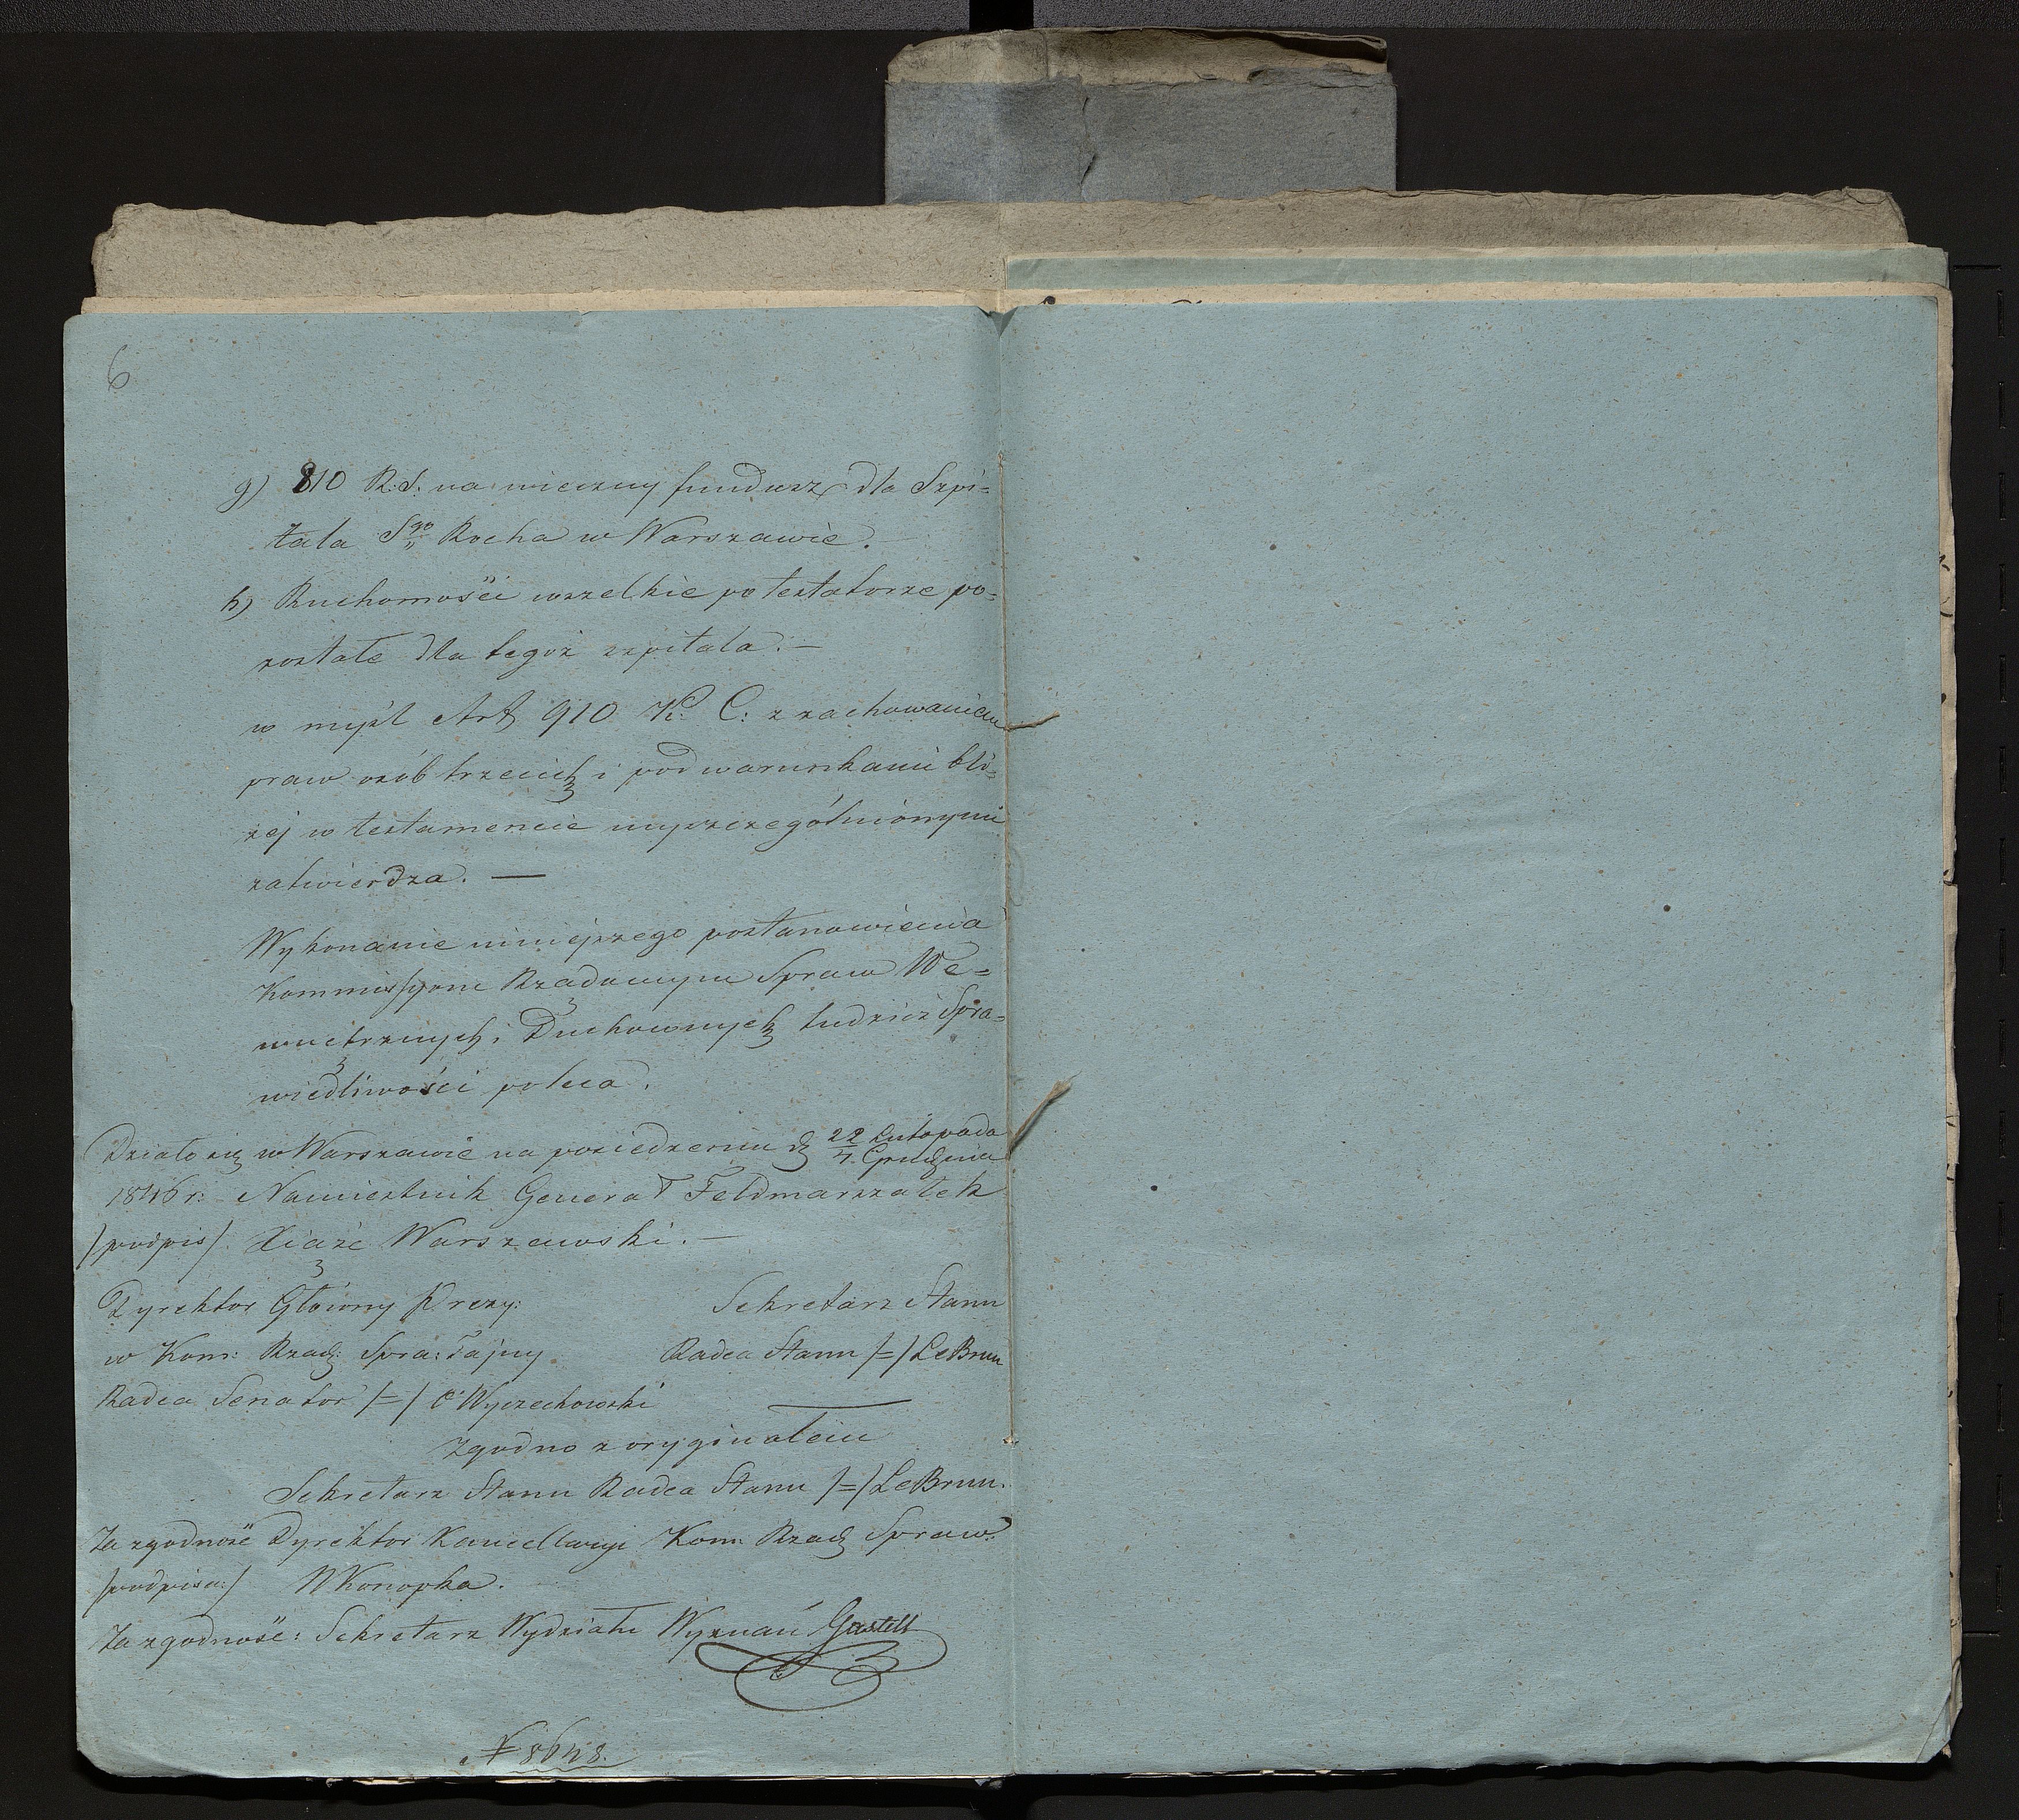 6
g) 810 R: S: na wieczny fundusz dla Szpi=
tala Sgo Rocha w Warszawie. —
h) Ruchomości wszelkie po testatorze po=
zostałe dla tegoż szpitala. —
w myśl Art 910 K: C: z zachowaniem
praw osób trzecich i pod warunkami bli=
żej w testamencie wyszczególnionymi
zatwierdza. —
Wykonanie niniejszego postanowienia
Kommissyom Rządowym Spraw We=
wnętrznych, Duchownych tudzież Spra=
wiedliwości poleca.
Działo się w Warszawie na posiedzeniu d 22 Listopada
4 Grudnia
1846 r: Namiestnik Generał Feldmarszałek
/podpis/. Xiąże Warszawski. —
Dyrektor Główny Prezy: Sekretarz Stanu
w Kom: Rząd: Spra: Tajny Radca Stanu /=/ LeBrun
Radca Senator /=/ Wyczechowski
Zgodno z oryginałem
Sekretarz Stanu Radca Stanu /=/ LeBrun.
Za zgodność Dyrektor Kancellaryi Kom Rząd Spraw:
/podpisa:/ Konopka.
Za zgodność: Sekretarz Wydziału Wyznań
N 8648.